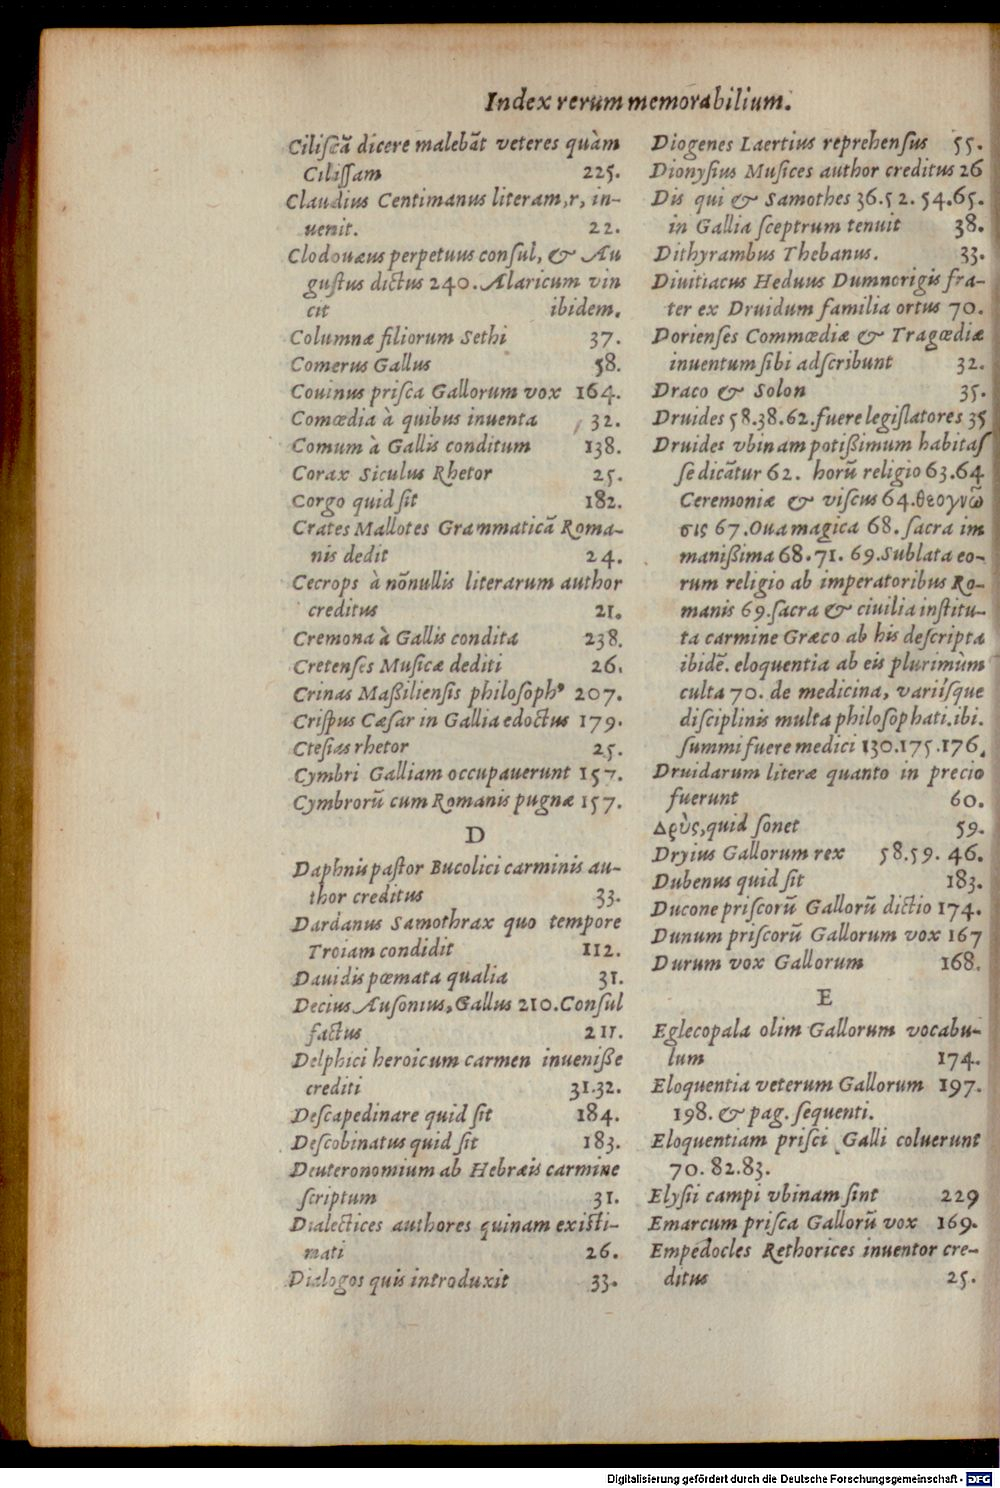 Index rerum memorabilium.
Ciliſcā dicere malebāt veteres quàm
Ciliſſam 225.
Claudius Centimanus literam, r, in-
uenit. 22.
Clodouæus perpetuus conſul, & Au
guſtus dictus 240. Alaricum vin
cit ibidem.
Columnæ filiorum Sethi 37.
Comerus Gallus 58.
Couinus priſca Gallorum vox 164.
Comœdia à quibus inuenta 32.
Comum à Gallis conditum 138.
Corax Siculus Rhetor 25.
Corgo quid ſit 182.
Crates Mallotes Grammaticā Roma-
nis dedit 24.
Cecrops à nōnullis literarum author
creditus 21.
Cremona à Gallis condita 238.
Cretenſes Muſicæ dediti 26.
Crinas Maßilienſis philoſophꝰ 207.
Criſpus Cæſar in Gallia edoctus 179.
Cteſias rhetor 25.
Cymbri Galliam occupauerunt 157.
Cymbrorū cum Romanis pugnæ 157.
D
Daphnis paſtor Bucolici carminis au-
thor creditus 33.
Dardanus Samothrax quo tempore
Troiam condidit 112.
Dauidis pœmata qualia 31.
Decius Auſonius, Gallus 210. Conſul
factus 211.
Delphici heroicum carmen inueniße
crediti 31.32.
Deſcapedinare quid ſit 184.
Deſcobinatus quid ſit 183.
Deuteronomium ab Hebræis carmine
ſcriptum 31.
Dialectices authores quinam exiſti-
mati 26.
Dialogos quis introduxit 33.
Diogenes Laertius reprehenſus 55.
Dionyſius Muſices author creditus 26
Dis qui & Samothes 36.52.54.65.
in Gallia ſceptrum tenuit 38.
Dithyrambus Thebanus. 33.
Diuitiacus Heduus Dumnorigis fra-
ter ex Druidum familia ortus 70.
Dorienſes Commœdiæ & Tragœdiæ
inuentum ſibi adſcribunt 32.
Draco & Solon 35.
Druides 58.38.62. fuere legiſlatores 35
Druides vbinam potißimum habitaſ
ſe dicātur 62. horū religio 63.64
Ceremoniæ & viſcus 64. θεογνῶ
σις 67. Oua magica 68. ſacra im
manißima 68.71. 69. Sublata eo-
rum religio ab imperatoribus Ro-
manis 69. ſacra & ciuilia inſtitu-
ta carmine Græco ab his deſcripta
ibidē. eloquentia ab eis plurimùm
culta 70. de medicina, variiſque
diſciplinis multa philoſophati. ibi.
ſummi fuere medici 130.175.176.
Druidarum literæ quanto in precio
fuerunt 60.
Δρὺς, quid ſonet 59.
Dryius Gallorum rex 58.59. 46.
Dubenus quid ſit 183.
Ducone priſcorū Gallorū dictio 174.
Dunum priſcorū Gallorum vox 167
Durum vox Gallorum 168.
E
Eglecopala olim Gallorum vocabu-
lum 174.
Eloquentia veterum Gallorum 197.
198. & pag. ſequenti.
Eloquentiam priſci Galli coluerunt
70. 82.83.
Elyſii campi vbinam ſint 229
Emarcum priſca Gallorū vox 169.
Empedocles Rethorices inuentor cre-
ditus 25.
Digitalisierung gefördert durch die Deutsche Forschungsgemeinschaft - DFG